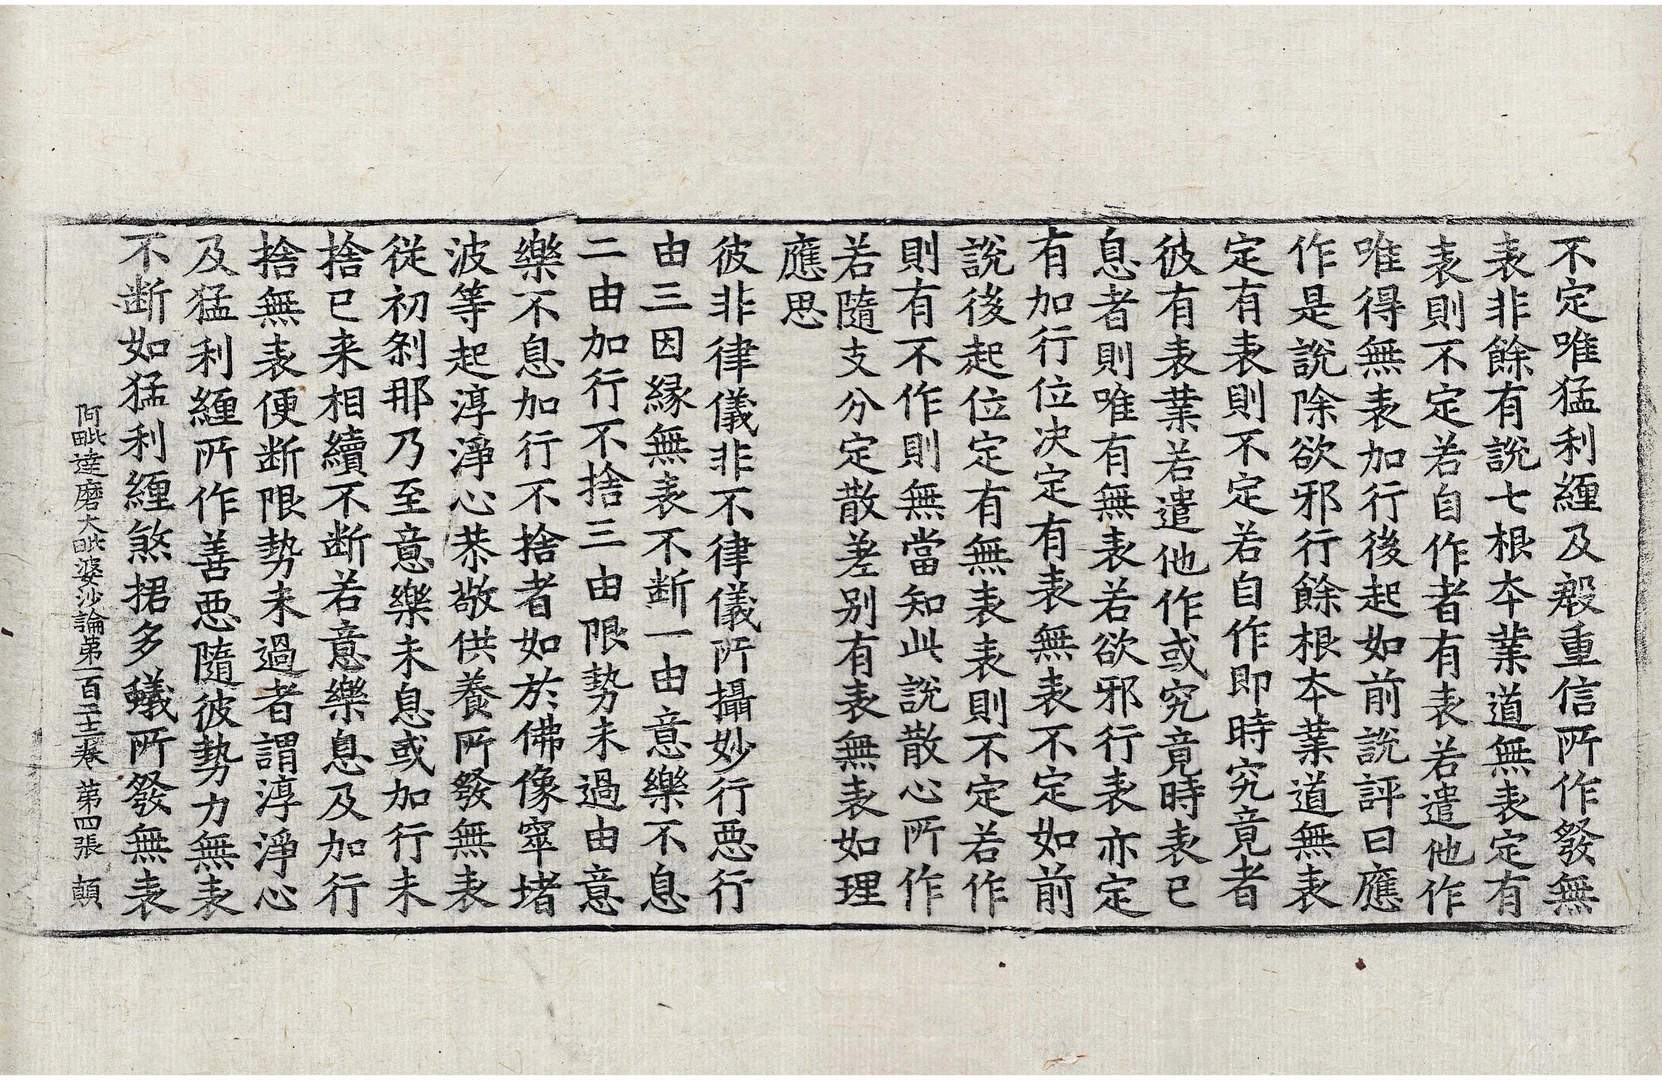 不定唯猛利纏及殷重信所作發無
表非餘有說七根本業道無表定有
表則不定若自作者有表若遣他作
唯得無表加行後起如前說評曰應
作是說除欲邪行餘根本業道無表
定有表則不定若自作即時究竟者
彼有表業若遣他作或究竟時表已
息者則唯有無表若欲邪行表亦定
有加行位決定有表無表不定如前
說後起位定有無表表則不定若作
則有不作則無當知此說散心所作
若隨支分定散差別有表無表如理
應思
彼非律儀非不律儀所攝妙行惡行
由三因緣無表不斷一由意樂不息
二由加行不捨三由限勢未過由意
樂不息加行不捨者如於佛像窣堵
波等起淳淨心恭敬供養所發無表
從初剎那乃至意樂未息或加行未
捨已來相續不斷若意樂息及加行
捨無表便斷限勢未過者謂淳淨心
及猛利纏所作善惡隨彼勢力無表
不斷如猛利纏煞捃多蟻所發無表
阿毗達磨大毗婆沙論第一百二十二卷 第四張 顛